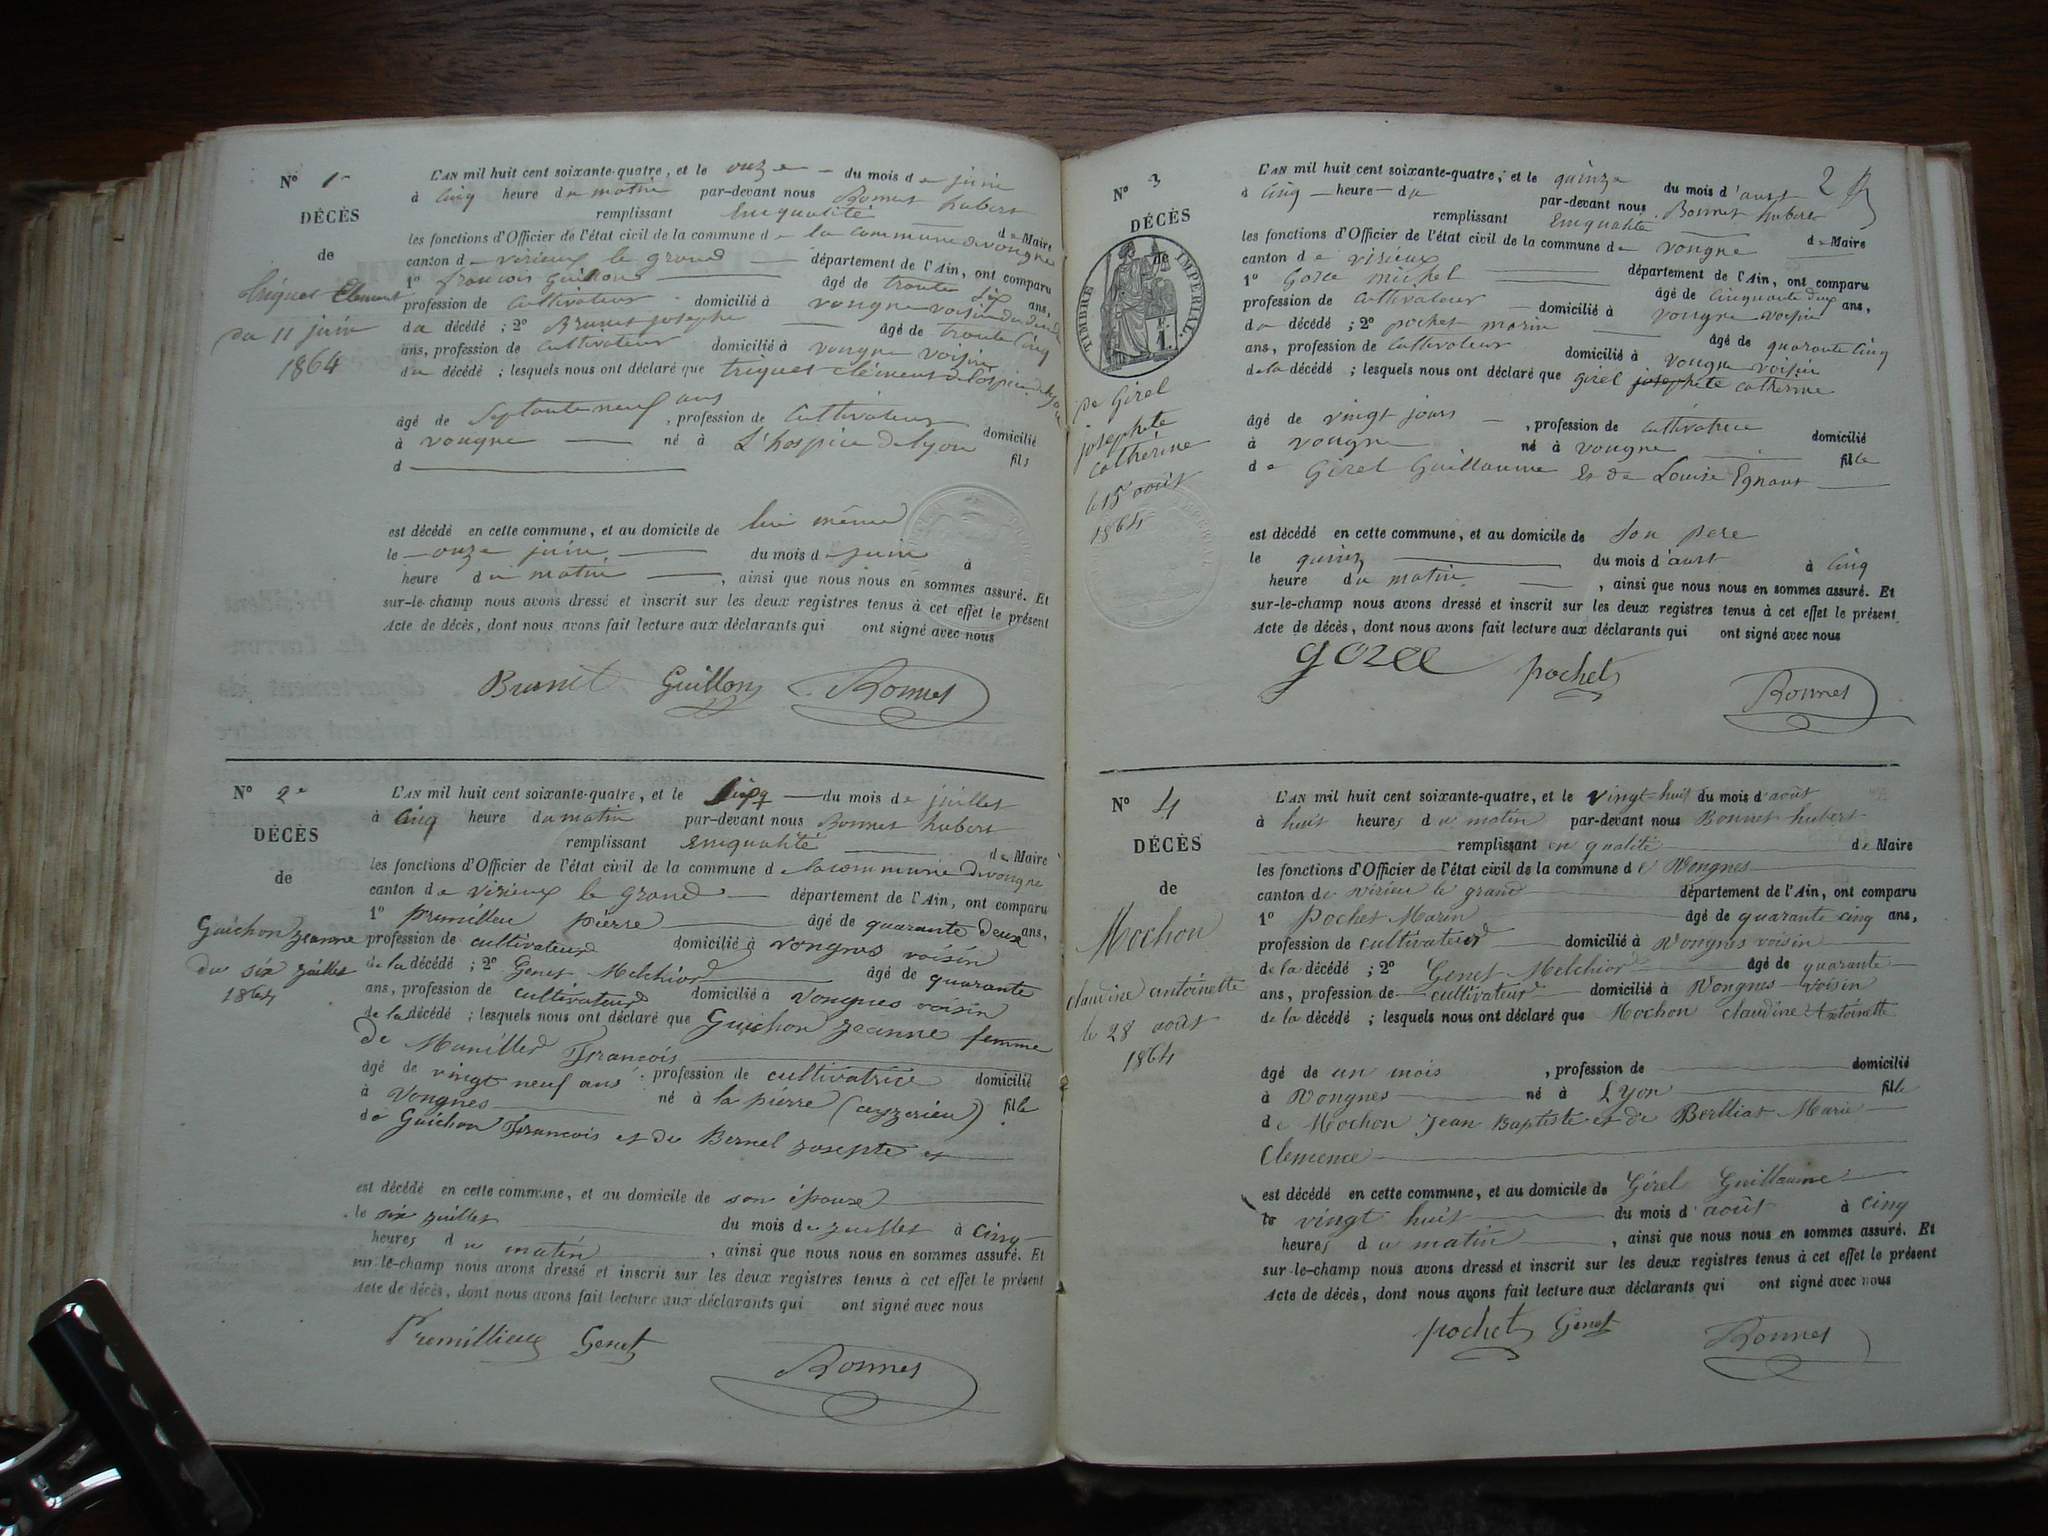 N° 1er
DÉCÈS
de
triquet Clement
du 11 juin
1864
L'AN mil huit cent soixante-quatre, et le onze du mois de juin
à cinq heure du matin par-devant nous Bonnet hubert
remplissant enqualité de Maire
les fonctions d'Officier de l'état civil de la commune de la commune de vongne
canton de virieux le grand département de l'Ain, ont comparu
1° francois Guillon âgé de trente six ans,
profession de cultivateur domicilié à vongne voisin du décédé
du décédé ; 2° Brunet josephe âgé de trente cinq
ans, profession de cultivateur domicilié à vongne voisin
du décédé ; lesquels nous ont déclaré que triquet clément de l'ospice de lyon
âgé de septante neuf ans, profession de cultivateur domicilié
à vongne né à L'hospice de lyon fils
d
est décédé en cette commune, et au domicile de lui même
le onze juin du mois de juin à
heure du matin, ainsi que nous nous en sommes assuré. Et
sur-le-champ nous avons dressé et inscrit sur les deux registres tenus à cet effet le présent
Acte de décès, dont nous avons fait lecture aux déclarants qui ont signé avec nous
Brunet Guillon Bonnet
N° 2e
DÉCÈS
de
Guichon jeanne
du six juillet
1864
L'AN mil huit cent soixante-quatre, et le du mois de juillet
à cinq heure du matin par-devant nous Bonnet hubert
remplissant enqualité de Maire
les fonctions d'Officier de l'état civil de la commune de la commune de vongne
canton de virieux le grand département de l'Ain, ont comparu
1° Premilleu pierre âgé de quarante deux ans,
profession de cultivateur domicilié à vongnes voisin
de la décédé ; 2° Genet Melchior âgé de quarante
ans, profession de cultivateur domicilié à Vongnes voisin
de la décédé ; lesquels nous ont déclaré que Guichon jeanne femme
de François
âgé de vingt neuf ans profession de cultivatrice domicilié
à Vongnes né à la pierre (ceyzerieu) fille
de Guichon François et de Bernel josepte
est décédé en cette commune, et au domicile de son épouse
le six juillet du mois de juillet à cinq
heures du matin, ainsi que nous nous en sommes assuré. Et
sur-le-champ nous avons dressé et inscrit sur les deux registres tenus à cet effet le présent
Acte de décès, dont nous avons fait lecture aux déclarants qui ont signé avec nous
Premillieu Genet
Bonnet
2
N° 3
DÉCÈS
de
TIMBRE IMPÉRIAL
de Girel
josephete
catherine
le 15 août
1864
L'AN mil huit cent soixante-quatre, et le quinze du mois d'aust
à cinq heure du par-devant nous Bonnet hubert
remplissant enqualité de Maire
les fonctions d'Officier de l'état civil de la commune de vongne
canton de virieux département de l'Ain, ont comparu
1° Goze michel âgé de cinquante deux ans,
profession de cultivateur domicilié à vongne voisin
du décédé ; 2° pochet marin âgé de quarante cinq
ans, profession de cultivateur domicilié à vongne voisin
de la décédé ; lesquels nous ont déclaré que girel josephete catherine
âgé de vingt jours, profession de cultivatrice domicilié
à vongne né à vongne fille
de Girel Guillaume et de Louise Egnant
est décédé en cette commune, et au domicile de son pere
le quinz du mois d'aust à cinq
heure du matin, ainsi que nous nous en sommes assuré. Et
sur-le-champ nous avons dressé et inscrit sur les deux registres tenus à cet effet le présent
Acte de décès, dont nous avons fait lecture aux déclarants qui ont signé avec nous
pochet
Bonnet
N° 4
DÉCÈS
de
Mochon
claudine antoinette
le 28 août
1864
L'AN mil huit cent soixante-quatre, et le vingt-huit du mois d'août
à huit heures du matin par-devant nous Bonnet hubert
remplissant en qualité de Maire
les fonctions d'Officier de l'état civil de la commune de Vongnes
canton de virieu le grand département de l'Ain, ont comparu
1° Pochet Marin âgé de quarante cinq ans,
profession de cultivateur domicilié à Vongnes voisin
de la décédé ; 2° Genet Melchior âgé de quarante
ans, profession de cultivateur domicilié à Vongnes voisin
de la décédé ; lesquels nous ont déclaré que Mochon claudine Antoinette
âgé de un mois, profession de domicilié
à Vongnes né à Lyon fille
de Mochon Jean Baptiste et de Berlliat Marie
Clemence
est décédé en cette commune, et au domicile de Girel Guillaume
le vingt huit du mois d'août à cinq
heures du matin, ainsi que nous nous en sommes assuré. Et
sur-le-champ nous avons dressé et inscrit sur les deux registres tenus à cet effet le présent
Acte de décès, dont nous avons fait lecture aux déclarants qui ont signé avec nous
pochet Genet
Bonnet